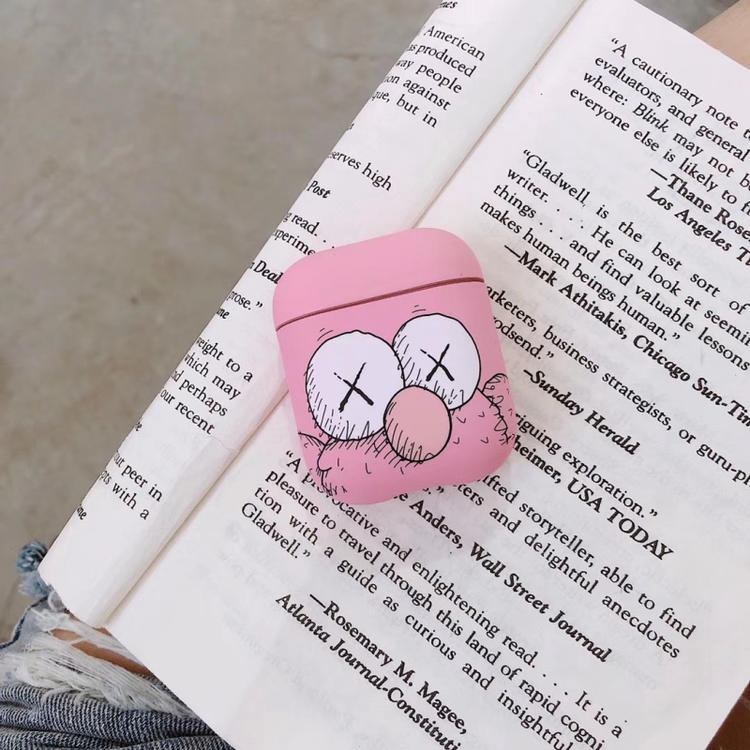 American
as produced
way people
on against
que, but in
serves high
Post
g read. . . .
xperime
Deal
prose.”
weight to a
which may
d perhaps
our recent
peer in
pts with a
“A cautionary note
evaluators, and general
where: Blink may not b
everyone else is likely to f
—Thane Rose
Los Angeles T
“Gladwell is the best sort of
writer. . . . He can look at seemin
things . . . and find valuable lessons
makes human beings human.”
—Mark Athitakis, Chicago Sun-Tim
arketers, business strategists, or guru-p
odsend.”
-Sunday Herald
riguing exploration.”
heimer, USA TODAY
ifted storyteller, able to find
ters and delightful anecdotes
e Anders, Wall Street Journal
“A provocative and enlightening read. . . . It is a
pleasure to travel through this land of rapid cogni
tion with a guide as curious and insightful
Gladwell.”
—Rosemary M. Magee,
Atlanta Journal-Constituti